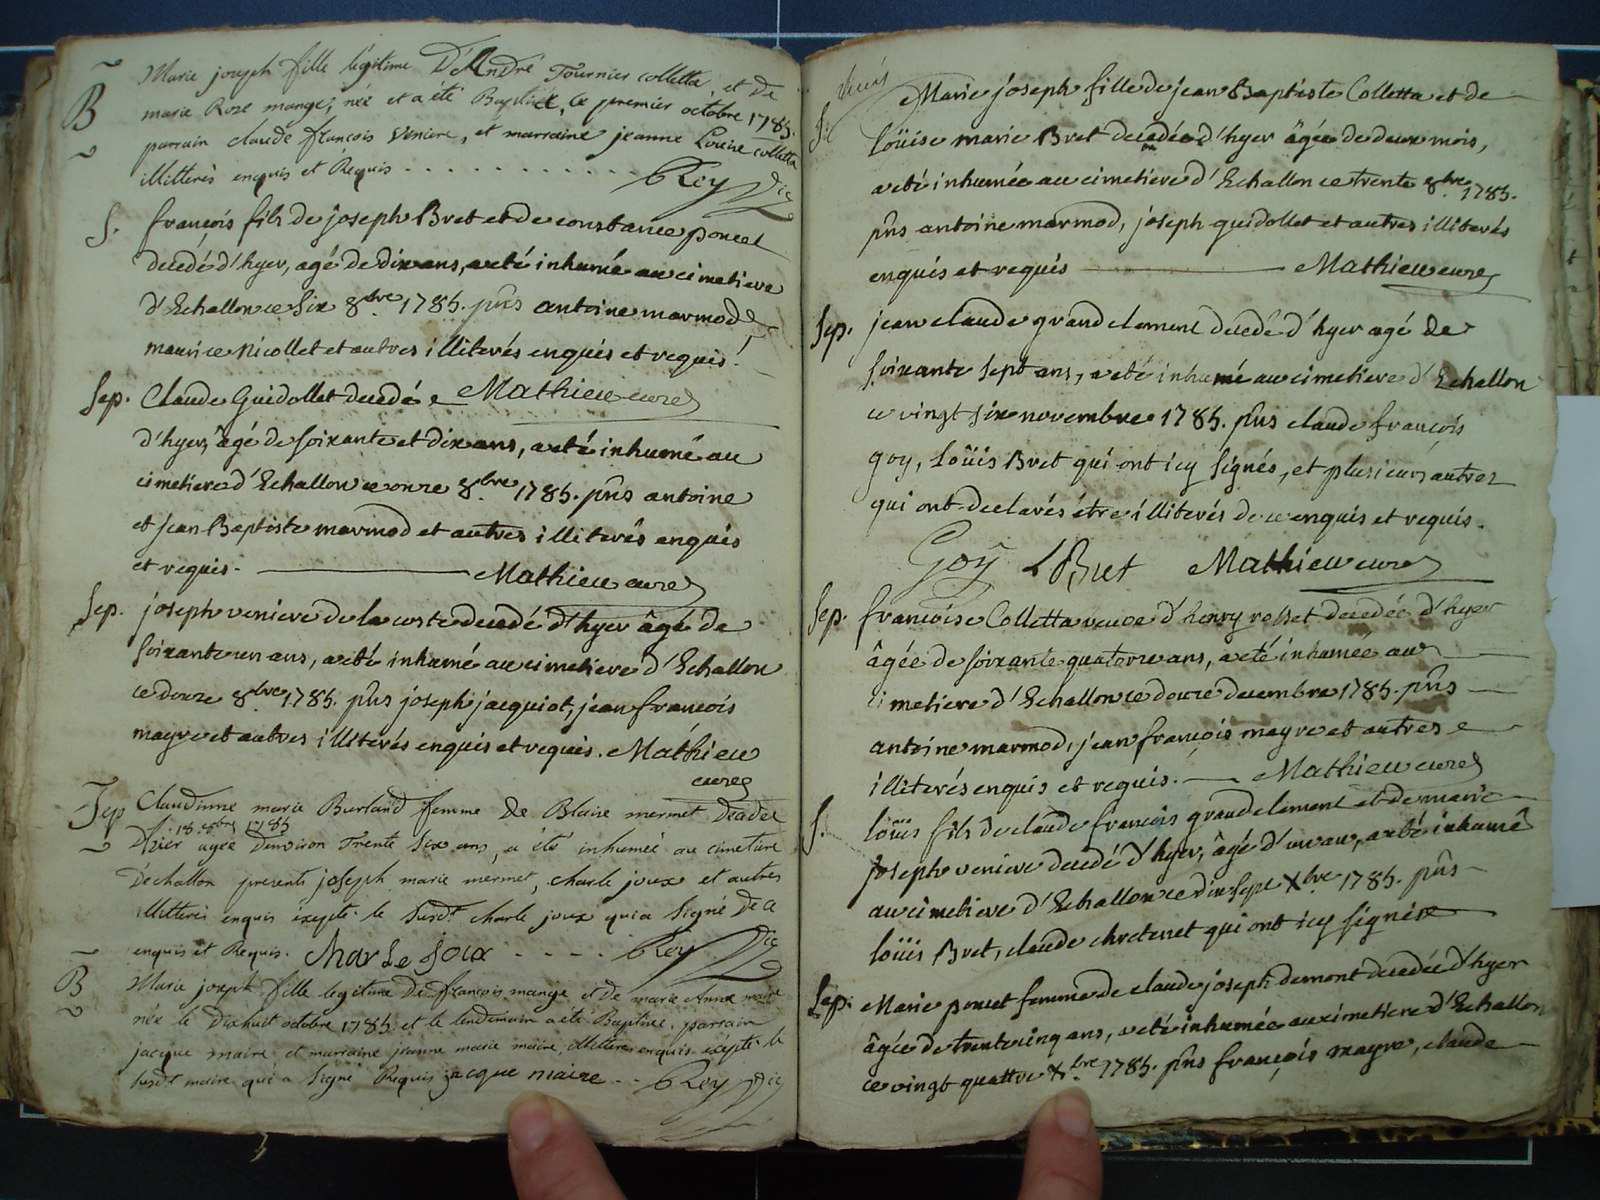 B Marie joseph fille légitime D'André Tournier colletta, et de
marie Roze mange; née et a été Baptisée, le premier octobre 1785.
parrain claude françois veniere, et marraine jeanne Louise colletta
illitterés enquis et Requis . . . . . . . . . . . . Rey Vic
S. françois fils de joseph Bret et de constance poncet
decedé d'hyer, agé de dix ans, a eté inhumé au cimetiere
d'Echallon ce six 8bre 1785. pñs antoine marmod
maurice Nicollet et autres illiterés enquis et requis.
Sep. Claude Guidollet decedé Mathieu curé
d'hyer, âgé de soixante et dix ans, a eté inhumé au
cimetiere d'Echallon ce onze 8bre 1785. pñs antoine
et jean Baptiste marmod et autres illiterés enquis
et requis. Mathieu curé
Sep. joseph veniere de la coste decedé d'hyer âgé de
soixante un ans, a eté inhumé au cimetiere d'Echallon
ce douze 8bre 1785. pñs joseph jacquiot, jean françois
mayre et autres illiterés enquis et requis. Mathieu
curé
Sep Claudinne marie Burland femme de Blaise mermet décédée
18 8bre 1785
D'hier agée d'environ Trente Six ans, a été inhumée au cimetiere
D'échallon presents joseph marie mermet, charle joux et autres
illitterés enquis éxepté le Susdt charle joux qui a Signé De ce
enquis et Requis. Charle joux . . . . Rey Vic
B Marie joseph fille legitime De françois mange et de marie Anne maire
née le Dixhuit octobre 1785 et le lendemain a été Baptisée, parrain
jacque maire et marraine jeanne marie maire, illitterés enquis éxepté le
susdt maire qui a Signé Requis jacque maire . . Rey Vic
S. Marie joseph fille de jean Baptiste Colletta et de
Loüise marie Bret decedée d'hyer âgée de deux mois,
a eté inhumée au cimetiere d'Echallon ce trente 8bre 1785.
pñs antoine marmod, joseph guidollet et autres illiterés
enquis et requis Mathieu curé
Sep. jean claude grandclement decedé d'hyer agé de
soixante sept ans, a eté inhumé au cimetiere d'Echallon
ce vingt six novembre 1785. pñs claude françois
goy, Loüis Bret qui ont icy signés, et plusieurs autres
qui ont declarés étre illiterés de ce enquis et requis.
Goÿ LBret Mathieu curé
Sep. françoise Colletta veuve d'henry rosset decedée d'hyer
âgée de soixante quatorze ans, a eté inhumée au
cimetiere d'Echallon ce douze decembre 1785. pñs
antoine marmod, jean françois mayre et autres
illiterés enquis et requis. Mathieu curé
S. Loüis fils de claude françois grandclement et de marie
joseph veniere decedé d'hyer, âgé d'un an, a eté inhumé
au cimetiere d'Echallon ce dix sept Xbre 1785. pñs
Loüis Bret, claude chretenet qui ont icy signés
Sep. Marie poncet femme de claude joseph demont decedée d'hyer
âgée de trente cinq ans, a eté inhumée au cimetiere d'Echallon
ce vingt quattre Xbre 1785. pñs françois mayre, claude